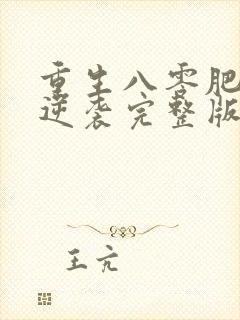 重生八零肥
逆袭完整版
王亢